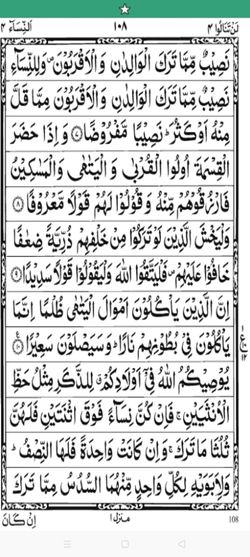 لَنْ تَنَالُوا ٤ ١٠٨ اَلنِّسَآء ٤
نَصِيْبٌ مِّمَّا تَرَكَ الْوَالِدٰنِ وَ الْاَقْرَبُوْنَ۪ وَ لِلنِّسَآءِ
نَصِيْبٌ مِّمَّا تَرَكَ الْوَالِدٰنِ وَ الْاَقْرَبُوْنَ مِمَّا قَلَّ
مِنْهُ اَوْ كَثُرَؕ نَصِيْبًا مَّفْرُوْضًا ۷ وَ اِذَا حَضَرَ
الْقِسْمَةَ اُولُوا الْقُرْبٰى وَ الْيَتٰمٰى وَ الْمَسٰكِيْنُ
فَارْزُقُوْهُمْ مِّنْهُ وَ قُوْلُوْا لَهُمْ قَوْلًا مَّعْرُوْفًا ۸
وَ لْيَخْشَ الَّذِيْنَ لَوْ تَرَكُوْا مِنْ خَلْفِهِمْ ذُرِّيَّةً ضِعٰفًا
خَافُوْا عَلَيْهِمْ۪ فَلْيَتَّقُوا اللّٰهَ وَ لْيَقُوْلُوْا قَوْلًا سَدِيْدًا ۹
اِنَّ الَّذِيْنَ يَاْكُلُوْنَ اَمْوَالَ الْيَتٰمٰى ظُلْمًا اِنَّمَا
يَاْكُلُوْنَ فِيْ بُطُوْنِهِمْ نَارًاؕ وَ سَيَصْلَوْنَ سَعِيْرًا ۱۰
يُوْصِيْكُمُ اللّٰهُ فِيْۤ اَوْلَادِكُمْۗ لِلذَّكَرِ مِثْلُ حَظِّ
الْاُنْثَيَيْنِۚ فَاِنْ كُنَّ نِسَآءً فَوْقَ اثْنَتَيْنِ فَلَهُنَّ
ثُلُثَا مَا تَرَكَۚ وَ اِنْ كَانَتْ وَاحِدَةً فَلَهَا النِّصْفُؕ
وَ لِاَبَوَيْهِ لِكُلِّ وَاحِدٍ مِّنْهُمَا السُّدُسُ مِمَّا تَرَكَ
اِنْ كَانَ منزل ١ 108